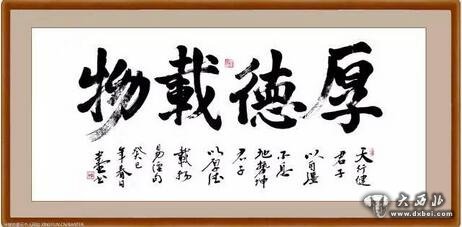 厚德載物
天行健
君子
以自強
不息
地勢坤
君子
以厚德
載物
易經句
癸巳
年春日
大西北
www.dxbei.com